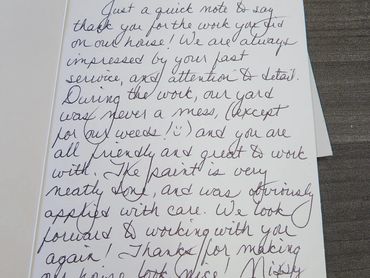 Just a quick note to say
thank you for the work you did
on our house! We are always
impressed by your fast
service, and attention to detail.
During the work, our yard
was never a mess, (except
for our weeds! :) and you are
all friendly and great to work
with. The paint is very
neatly done, and was obviously
applied with care. We look
forward to working with you
again! Thanks for making
our house look nice! Missy